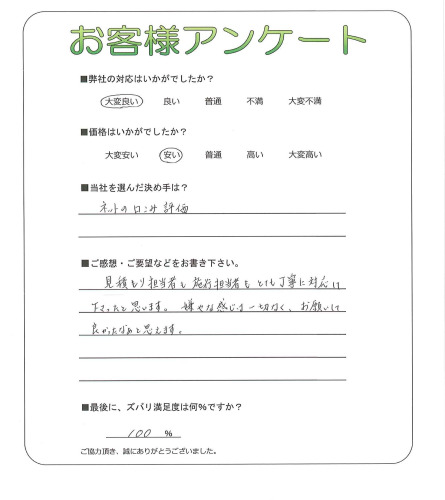 お客様アンケート
■弊社の対応はいかがでしたか？
大変良い 良い 普通 不満 大変不満
■価格はいかがでしたか？
大変安い 安い 普通 高い 大変高い
■当社を選んだ決め手は？
ネットの口コミ評価
■ご感想・ご要望などをお書き下さい。
見積もり担当者も施行担当者もとても丁寧に対応
下さったと思います。嫌やな感じは一切なく、お願いして
良かったなぁと思えます。
■最後に、ズバリ満足度は何%ですか？
100 %
ご協力頂き、誠にありがとうございました。